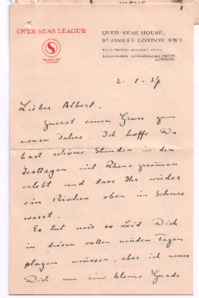 OVER-SEAS LEAGUE
OVER-SEAS HOUSE,
ST JAMES'S, LONDON, S.W.1
LONDON.
2-1-37
Lieber Albert,
Zuerst einen Gruss zum
neuen Jahre. Ich hoffe Du
hast schöne Stunden in den
Festtagen mit
erlebt und dass Ihr wieder
ein Bischen oben im Schnee
waret.
Es tut mir so Leid Dich
in diesen vollen Tagen
plagen müssen, aber ich muss
Dich um eine kleine